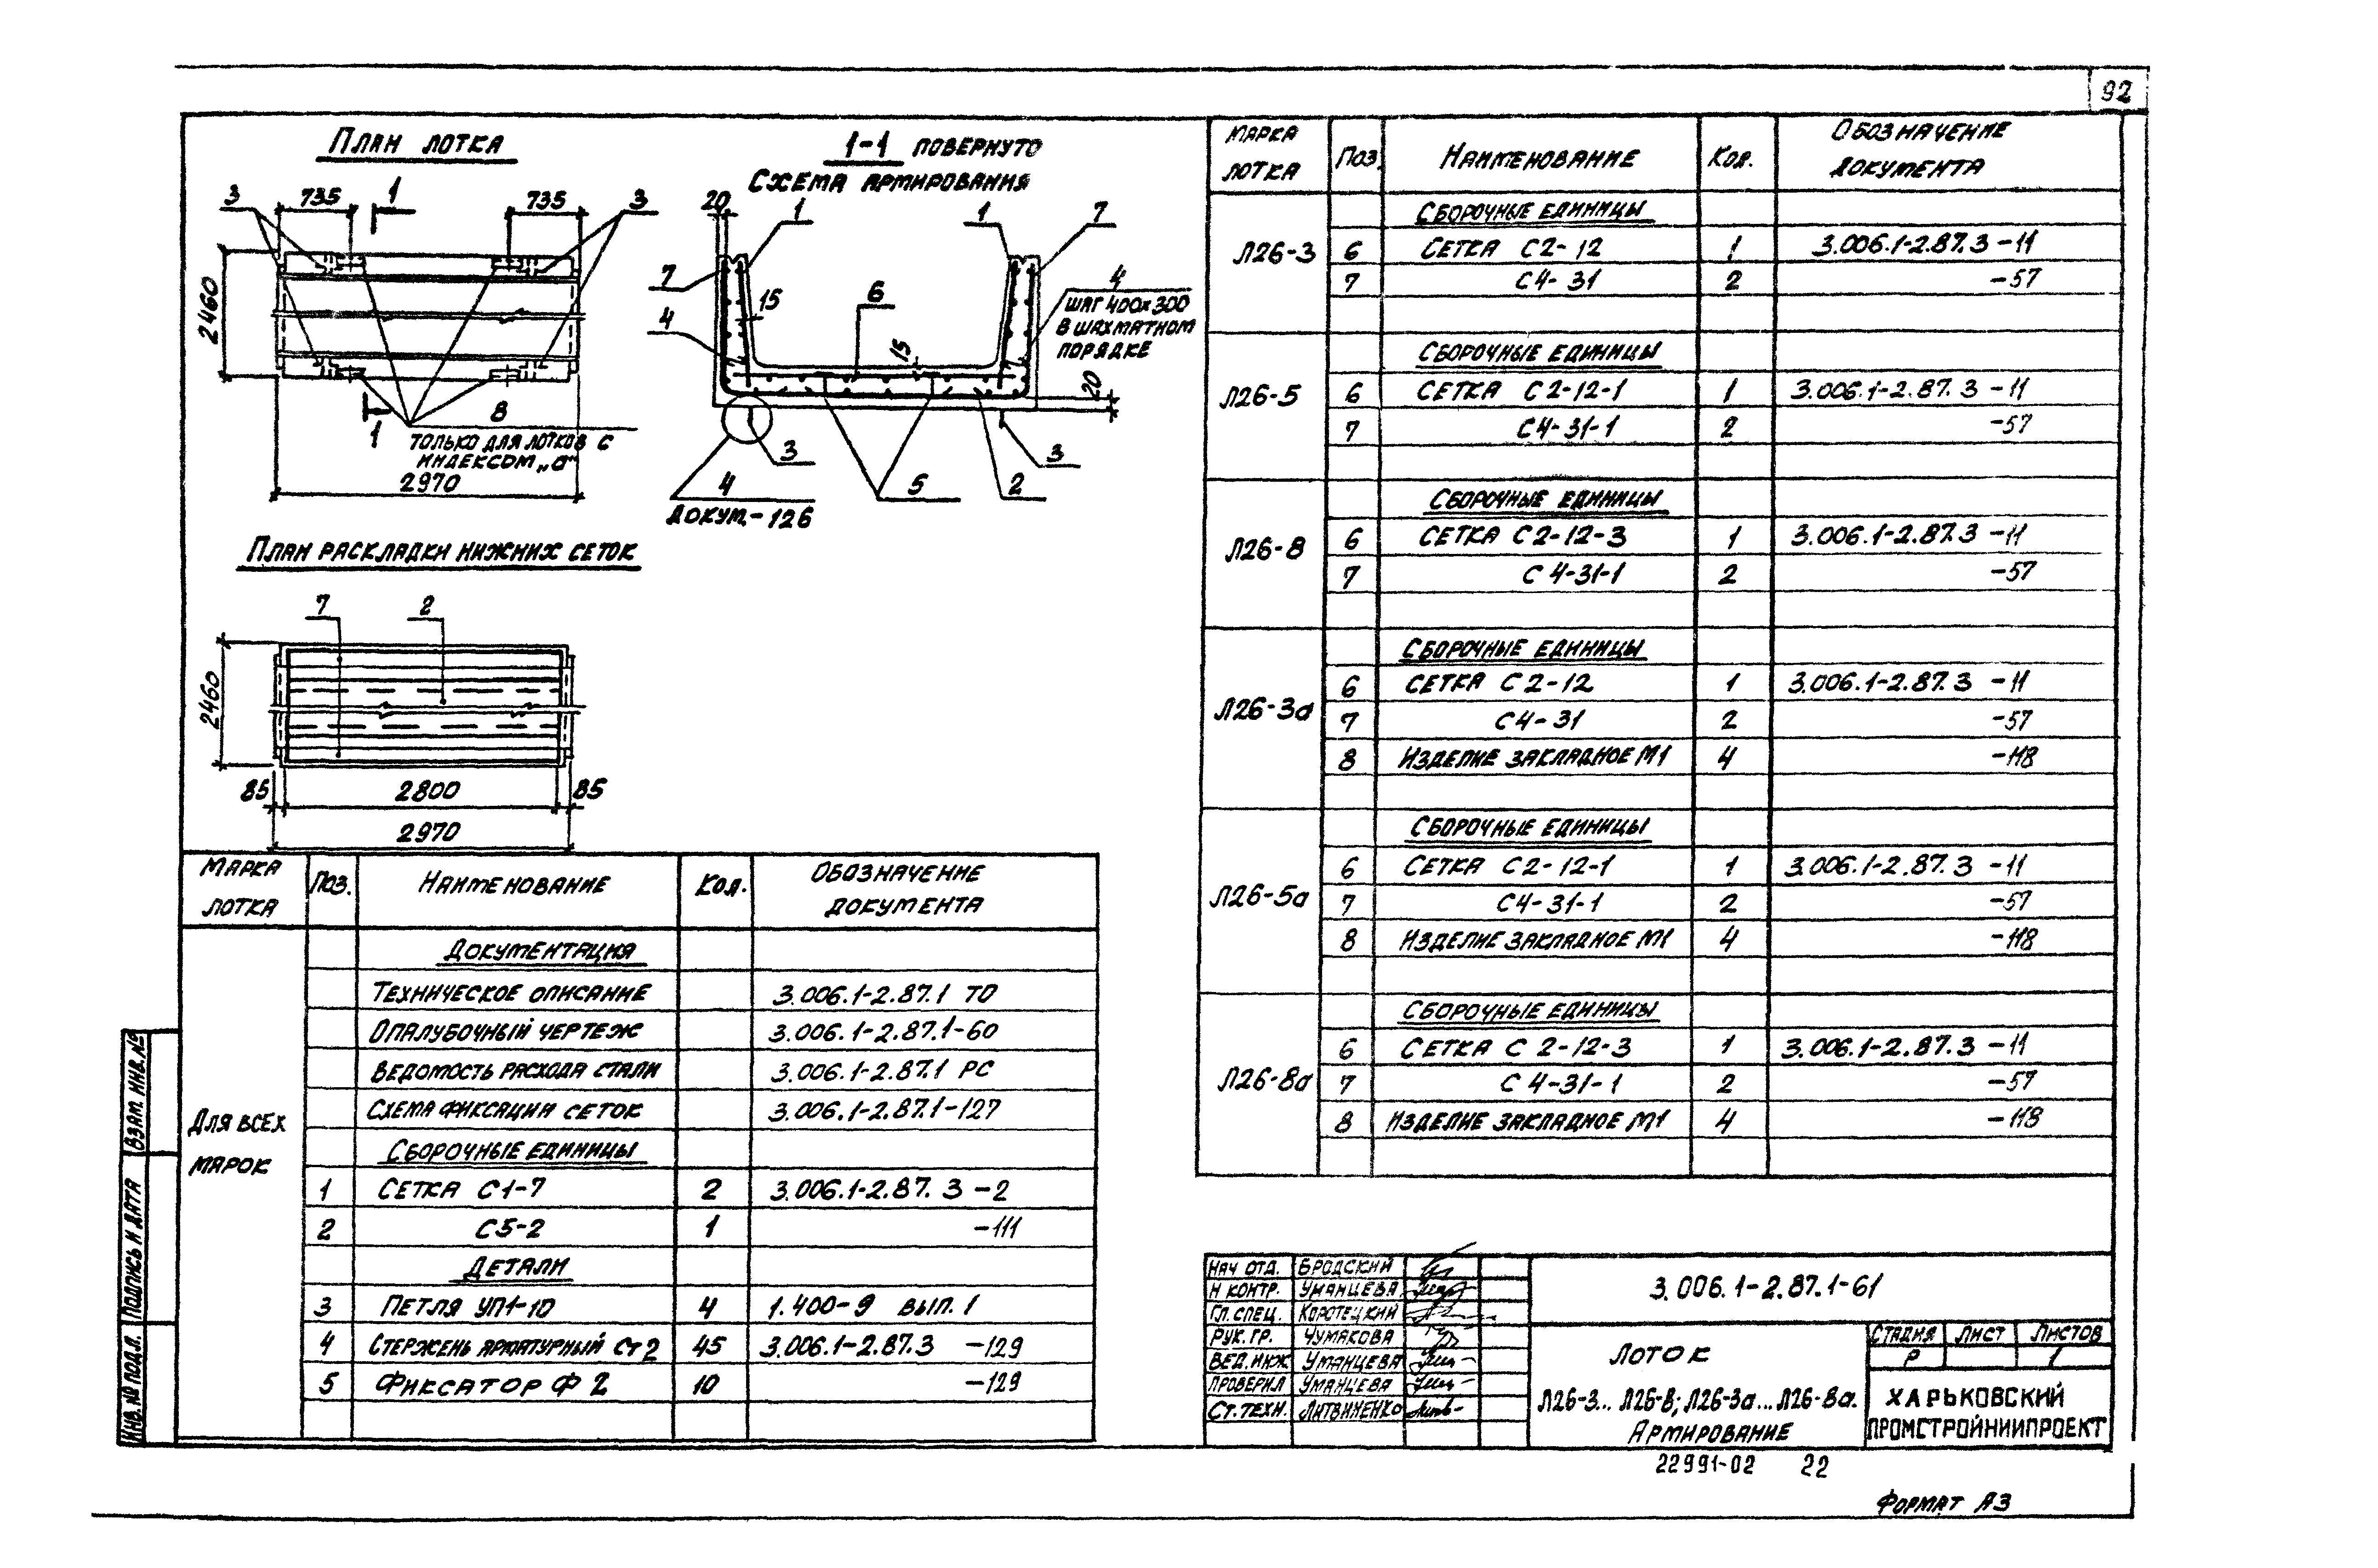 92
План лотка
3
735
1
735
3
2460
8
только для лотков с
индексом „а"
1
2970
1-1 повернуто
Схема армирования
20
1
1
7
7
15
6
4
шаг 400х300
в шахматном
порядке
4
15
20
3
3
4
5
2
Докум.-126
План раскладки нижних сеток
7
2
2460
85
2800
85
2970
Марка лотка | Поз. | Наименование | Кол. | Обозначение документа
Для всех марок
Документация
Техническое описание 3.006.1-2.87.1 ТО
Опалубочный чертеж 3.006.1-2.87.1-60
Ведомость расхода стали 3.006.1-2.87.1 РС
Схема фиксации сеток 3.006.1-2.87.1-127
Сборочные единицы
1 Сетка С1-7 2 3.006.1-2.87.3 -2
2 С5-2 1 -111
Детали
3 Петля УП1-10 4 1.400-9 вып. 1
4 Стержень арматурный Ст2 45 3.006.1-2.87.3 -129
5 Фиксатор Ф2 10 -129
Марка лотка | Поз. | Наименование | Кол. | Обозначение документа
Л26-3
Сборочные единицы
6 Сетка С2-12 1 3.006.1-2.87.3 -11
7 С4-31 2 -57
Л26-5
Сборочные единицы
6 Сетка С2-12-1 1 3.006.1-2.87.3 -11
7 С4-31-1 2 -57
Л26-8
Сборочные единицы
6 Сетка С2-12-3 1 3.006.1-2.87.3 -11
7 С4-31-1 2 -57
Л26-3а
Сборочные единицы
6 Сетка С2-12 1 3.006.1-2.87.3 -11
7 С4-31 2 -57
8 Изделие закладное М1 4 -118
Л26-5а
Сборочные единицы
6 Сетка С2-12-1 1 3.006.1-2.87.3 -11
7 С4-31-1 2 -57
8 Изделие закладное М1 4 -118
Л26-8а
Сборочные единицы
6 Сетка С2-12-3 1 3.006.1-2.87.3 -11
7 С4-31-1 2 -57
8 Изделие закладное М1 4 -118
Взам. инв. №
Подпись и дата
Инв. № подл.
Нач отд. Бродский
Н контр. Уманцева
Гл. спец. Коротецкий
Рук. гр. Чумакова
Вед. инж Уманцева
Проверил Уманцева
Ст. техн. Литвиненко
3.006.1-2.87.1-61
Лоток
Л26-3...Л26-8; Л26-3а...Л26-8а.
Армирование
Стадия Лист Листов
Р 1
Харьковский
Промстройниипроект
22991-02 22
Формат А3